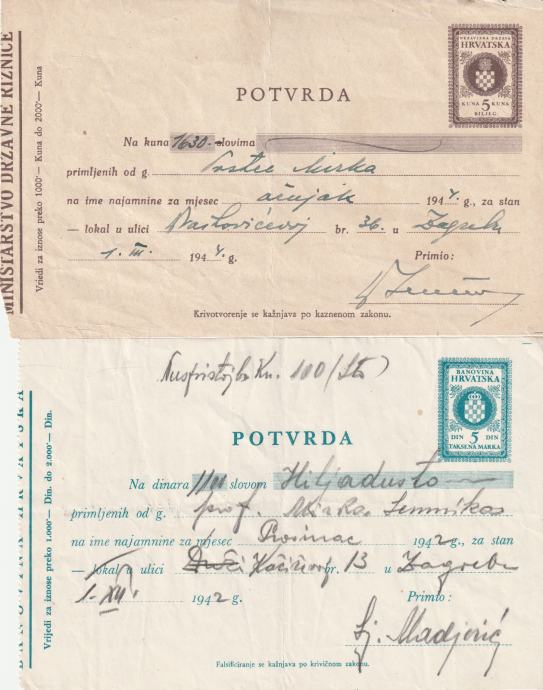 MINISTARSTVO DRŽAVNE RIZNICE
Vrijedi za iznose preko 1000·— Kuna do 2000·— Kuna
NEZAVISNA DRŽAVA
HRVATSKA
KUNA 5 KUNA
BILJEG
POTVRDA
Na kuna 1630.- slovima
primljenih od g. Mirka
na ime najamnine za mjesec ožujak 1944. g., za stan
— lokal u ulici br. 36. u Zagrebu
1. III. 1944 g. Primio:
Krivotvorenje se kažnjava po kaznenom zakonu.
BANOVINA HRVATSKA
Vrijedi za iznose preko 1.000·— Din. do 2.000·— Din.
Kn. 100 (Sto)
BANOVINA
HRVATSKA
DIN 5 DIN
TAKSENA MARKA
POTVRDA
Na dinara slovom Hiljadusto
primljenih od g. prof. Mirka
na ime najamnine za mjesec Prosinac 1942 g., za stan
— lokal u ulici br. 13 u Zagrebu
1. XII. 1942 g. Primio:
Lj. Madjerić
Falsificiranje se kažnjava po krivičnom zakonu.